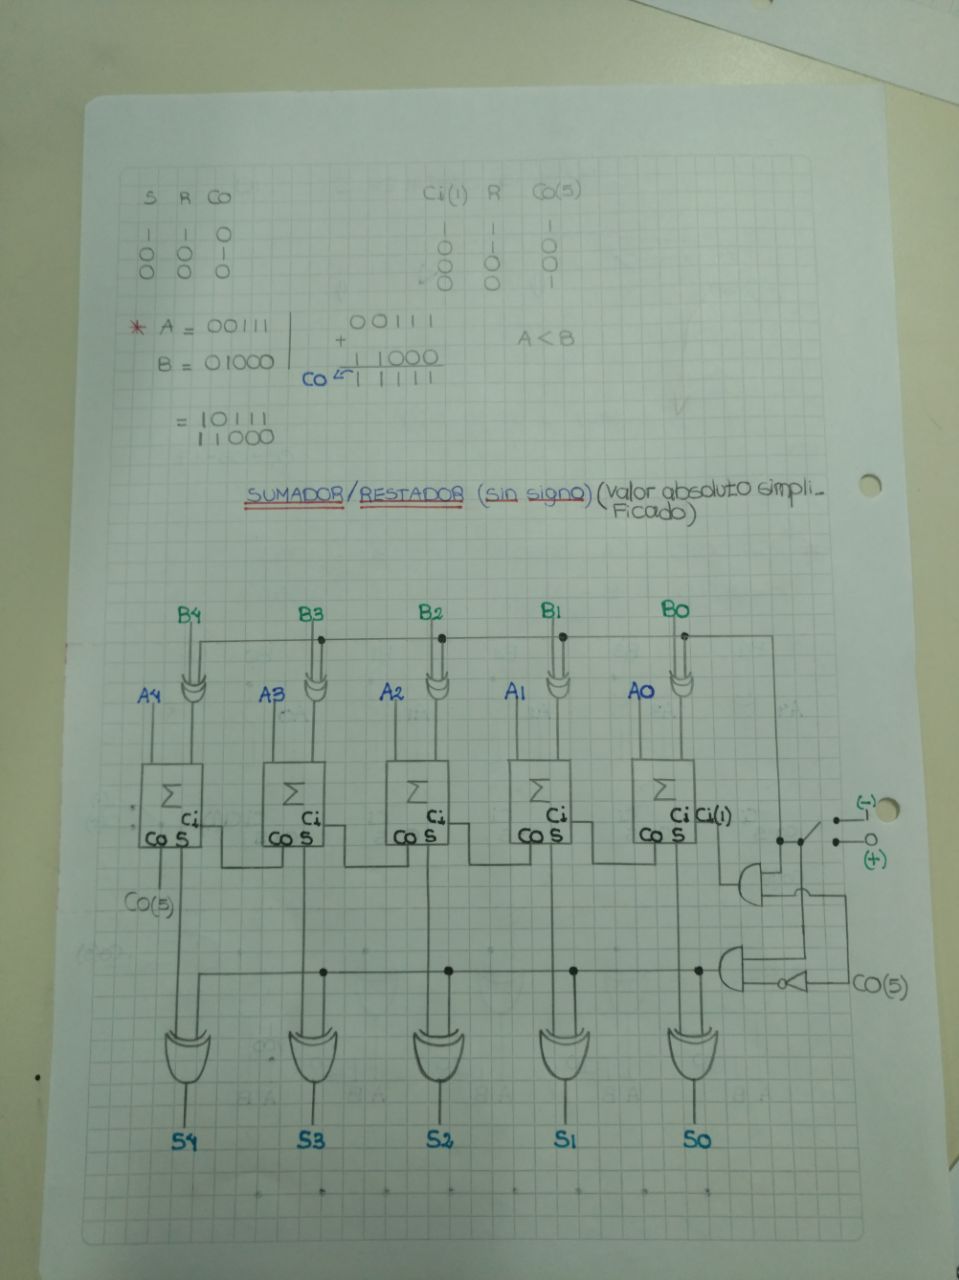 S R CO
1 1 0
0 0 1
0 0 0
Ci(1) R CO(5)
1 1 1
0 1 0
0 0 0
0 0 1
* A = 00111
B = 01000
00111
+
11000
CO ← 11111
A < B
= 10111
11000
SUMADOR/RESTADOR (sin signo) (valor absoluto simpli-
ficado)
B4 B3 B2 B1 B0
A4 A3 A2 A1 A0
Σ Σ Σ Σ Σ
Ci Ci Ci Ci Ci Ci(1)
CO S CO S CO S CO S CO S
(-)
1
0
(+)
CO(5)
CO(5)
S4 S3 S2 S1 S0